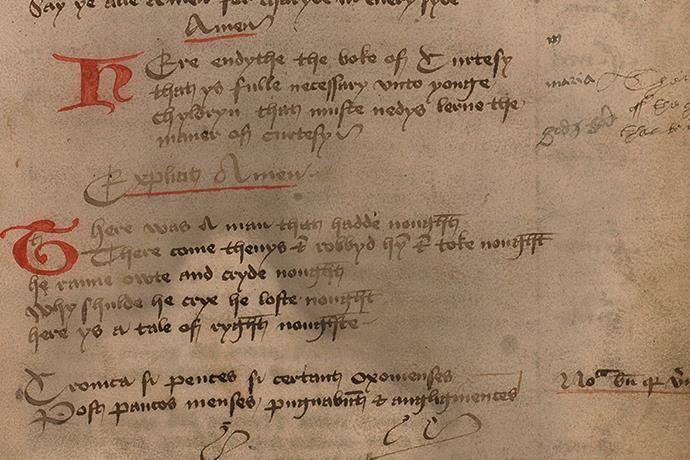 Say ye alle Amen for charyte in every syde
Amen
Here endythe the boke of Curtesy
that ys fulle necessary unto yonge
chyldryn that muste nedys lerne the
maner of curtesy
Explicit Amen
There was A man that hadde nought
There come thevys & robbyd hym & toke nought
he ranne owte and cryde nought
why shulde he crye he loste nought
here ys a tale of ryght noughte
Cronica si pentes si certant oxonienses
Post paucos menses pugnabunt & angliginenses
maria